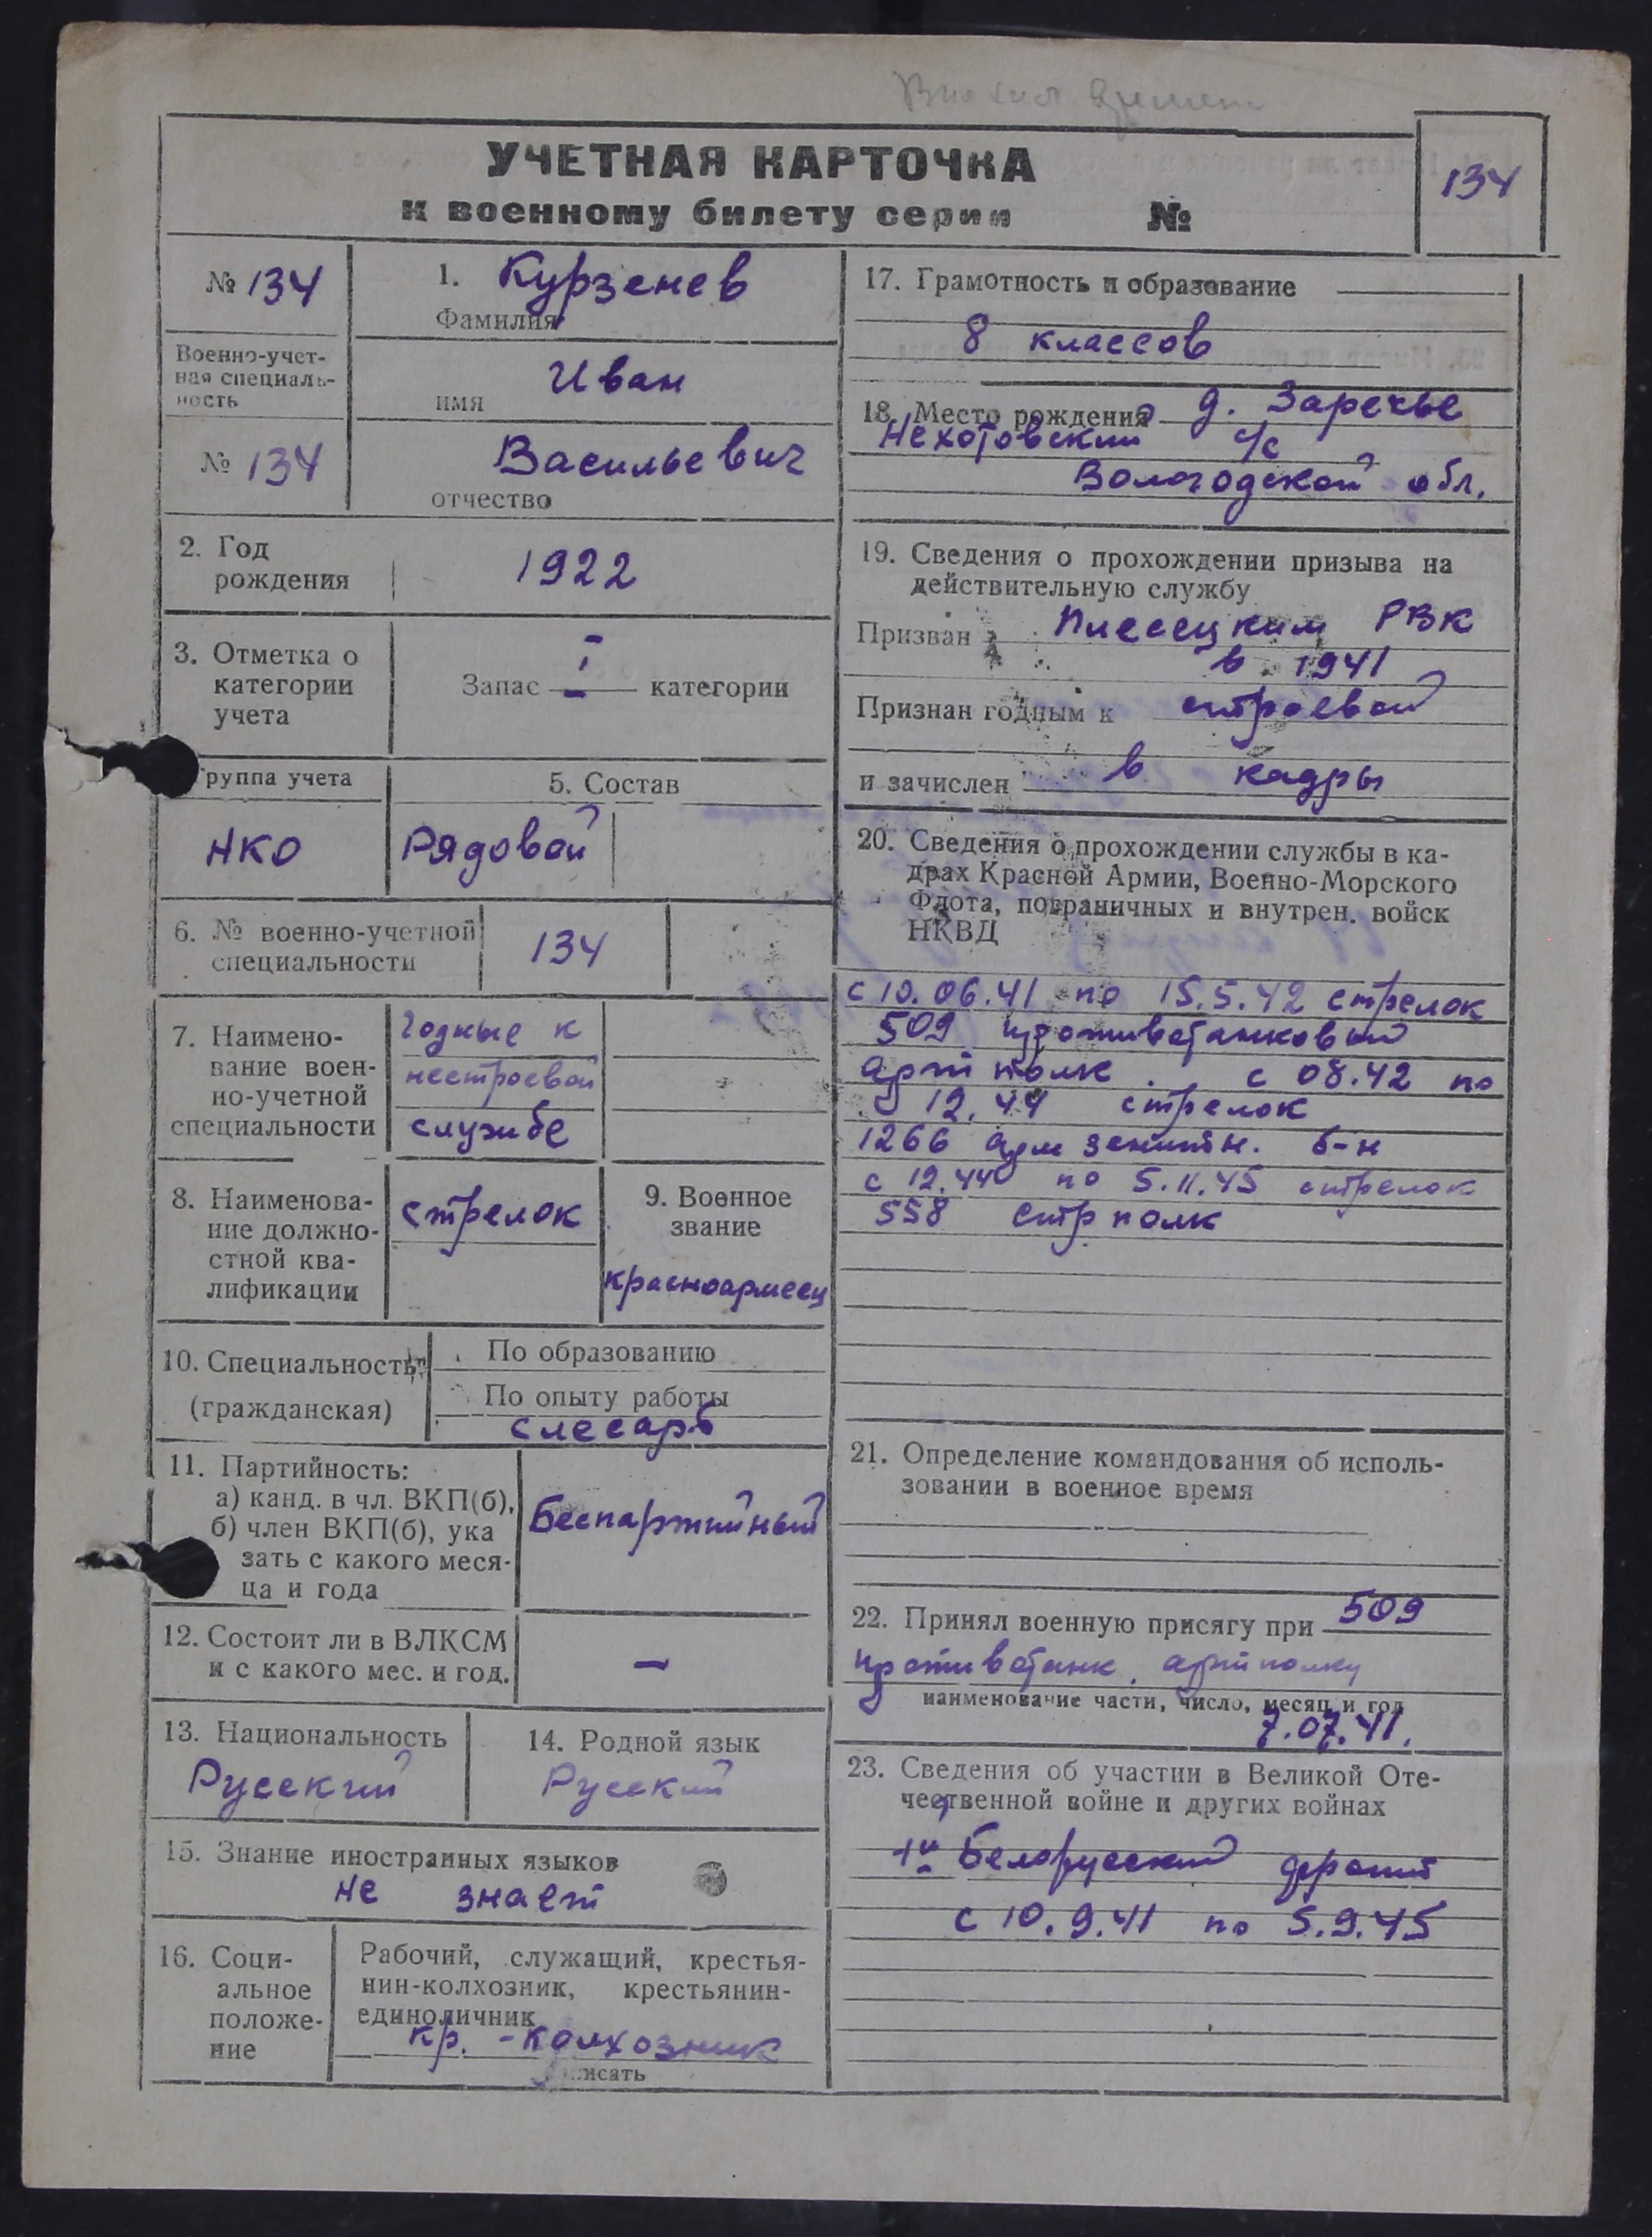 УЧЕТНАЯ КАРТОЧКА
к военному билету серии №
134
№ 134
Военно-учет-
ная специаль-
ность
№ 134
1. Курзенев
Фамилия
Иван
имя
Васильевич
отчество
2. Год
рождения
1922
3. Отметка о
категории
учета
Запас I категории
руппа учета
НКО
5. Состав
Рядовой
6. № военно-учетной
специальности
134
7. Наимено-
вание воен-
но-учетной
специальности
Годные к
нестроевой
службе
8. Наименова-
ние должно-
стной ква-
лификации
стрелок
9. Военное
звание
красноармеец
10. Специальность
(гражданская)
По образованию
По опыту работы
слесарь
11. Партийность:
а) канд. в чл. ВКП(б),
б) член ВКП(б), ука
зать с какого меся-
ца и года
Беспартийный
12. Состоит ли в ВЛКСМ
и с какого мес. и год.
—
13. Национальность
Русский
14. Родной язык
Русский
15. Знание иностранных языков
не знает
16. Соци-
альное
положе-
ние
Рабочий, служащий, крестья-
нин-колхозник, крестьянин-
единоличник
кр. - колхозник
исать
17. Грамотность и образование
8 классов
18. Место рождения д. Заречье
Нехотовский с/с
Вологодской обл.
19. Сведения о прохождении призыва на
действительную службу
Призван Плесецким РВК
в 1941
Признан годным к строевой
и зачислен в кадры
20. Сведения о прохождении службы в ка-
драх Красной Армии, Военно-Морского
Флота, пограничных и внутрен. войск
НКВД
с 10.06.41 по 15.5.42 стрелок
509 противотанковый
арт полк. с 08.42 по
12.44 стрелок
1266 арм зенитн. б-н
с 12.44 по 5.11.45 стрелок
558 стр полк
21. Определение командования об исполь-
зовании в военное время
22. Принял военную присягу при 509
противотанк. артполку
наименование части, число, месяц и год
7.07.41.
23. Сведения об участии в Великой Оте-
чественной войне и других войнах
1й Белорусский фронт
с 10.9.41 по 5.9.45